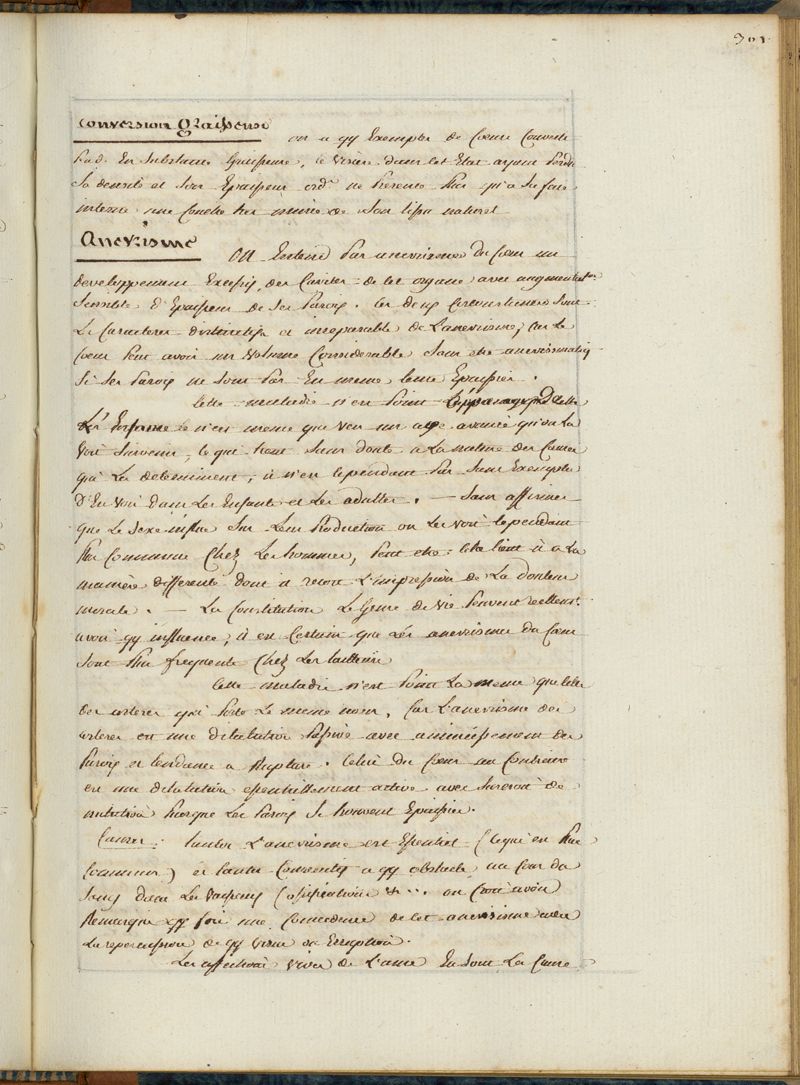 301
Conversion graisseuse
on a qq exemples de Coeur Converti
en substance graisseuse, le viscère dans cet Etat ayant perdu
sa densité et son Epaisseur ord. ne présente plus qu'à sa face
interne une couche très mince de son tissu naturel
Anevrisme
On Entend par anevrisme du Coeur un
developpement Excessif des Cavités de cet organe avec augmentat.on
sensible d'Epaisseur de ses parois. Ces deux Circonstances sont
Le Caractere distinctif et inseparable de L'anevrisme, car le
Coeur peut avoir un volume Considerable sans etre anevrismatiq
si ses parois ne sont pas En meme tems Epaissies.
Cette maladie n'en point
ce n'est meme que vers un age avancé qu'on la
voit survenir, ce qui tient sans doute a La nature des Causes
qui La determinent, il n'est cependant pas sans Exemple
d'En voir dans Les Enfants et Les adultes. — Sans affirmer
que Le sexe influe sur Leur production on Les voit cependant
plus Communs Chez Les hommes, peut etre cela tient il a La
manière differente dont il recoit L'impression de La douleur
morale. — La Constitution Le Genre de vie peuvent reellemt.
avoir qq influence, il est Certain que Les anevrismes du Coeur
sont plus frequents Chez Les tailleurs
Cette maladie n'est point La meme que celle
des arteres qui porte Le meme nom, Car L'anevrisme des
arteres est une dilatation passive avec amincissement des
parois et tendance a Rupture. Celui du Coeur au Contraire
est une dilatation essentiellement active avec surcroit de
nutrition puisque Les parois se trouvent Epaissies.
Causes: tantot L'anevrisme est Essentiel (ce qui est plus
Commun) et tantot Consecutif a qq obstacle au Cours du
sang dans Les vaisseaux (ossification &... on Croit avoir
Remarqué qq fois une Coincidence de cet anevrisme avec
La repercussion de qq virus ou Eruption.
Les affections vives de L'ame En sont La Cause